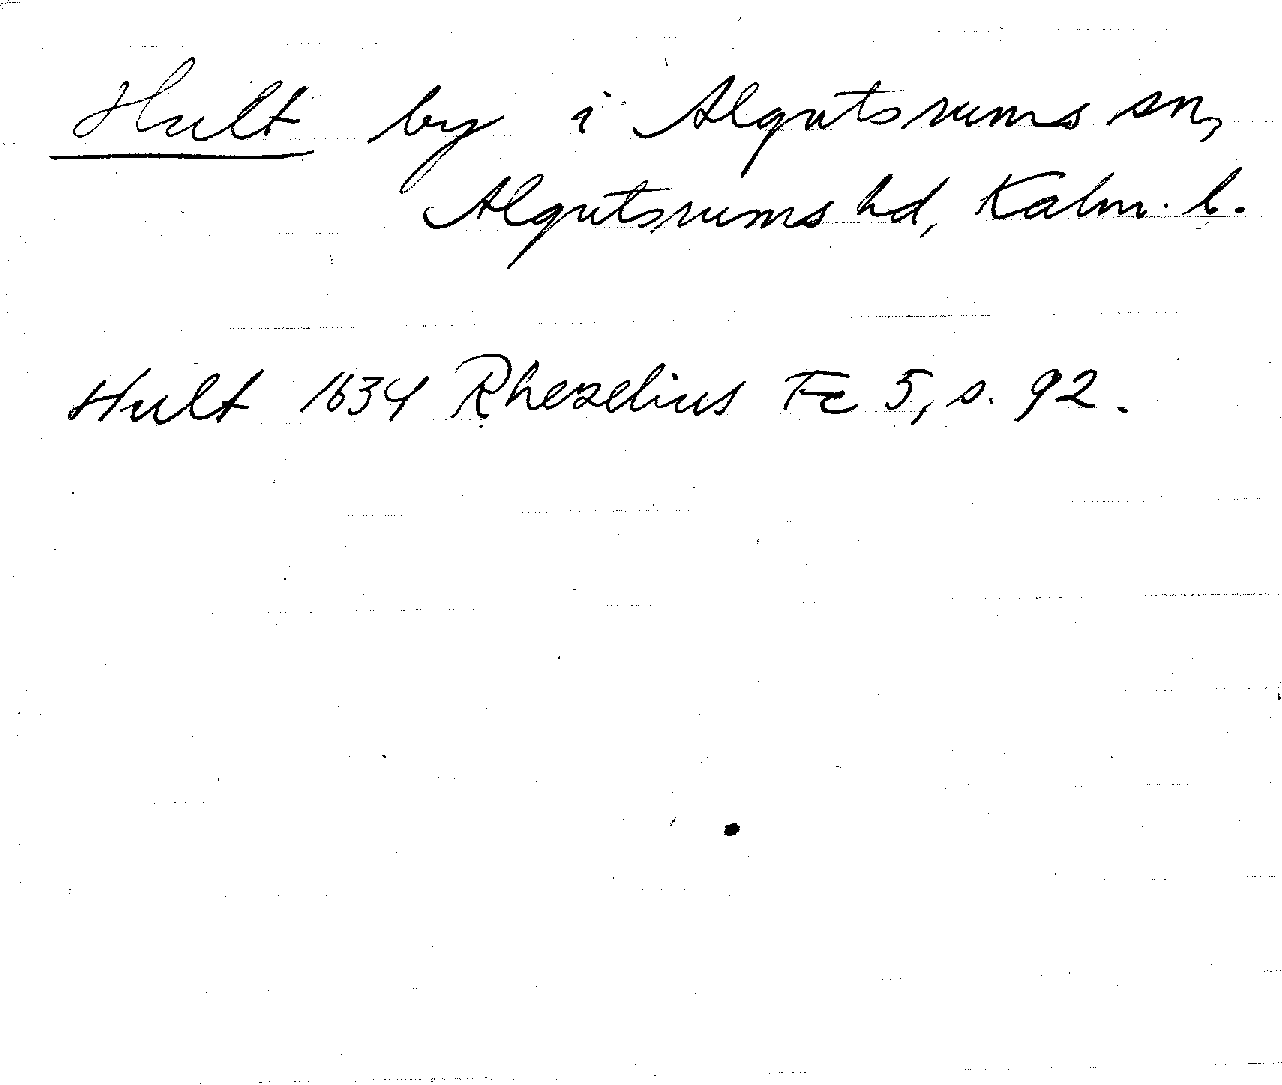 Hult by i Algutsrums sn,
Algutsrums hd, Kalm. l.
Hult 1634 Rhezelius Fc 5, s. 92.